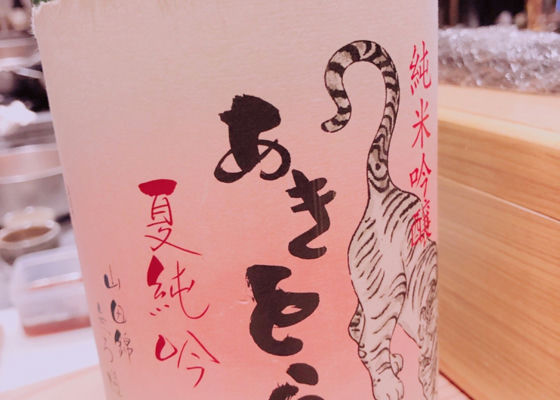 純米吟醸
あきとら
夏純吟
山田錦